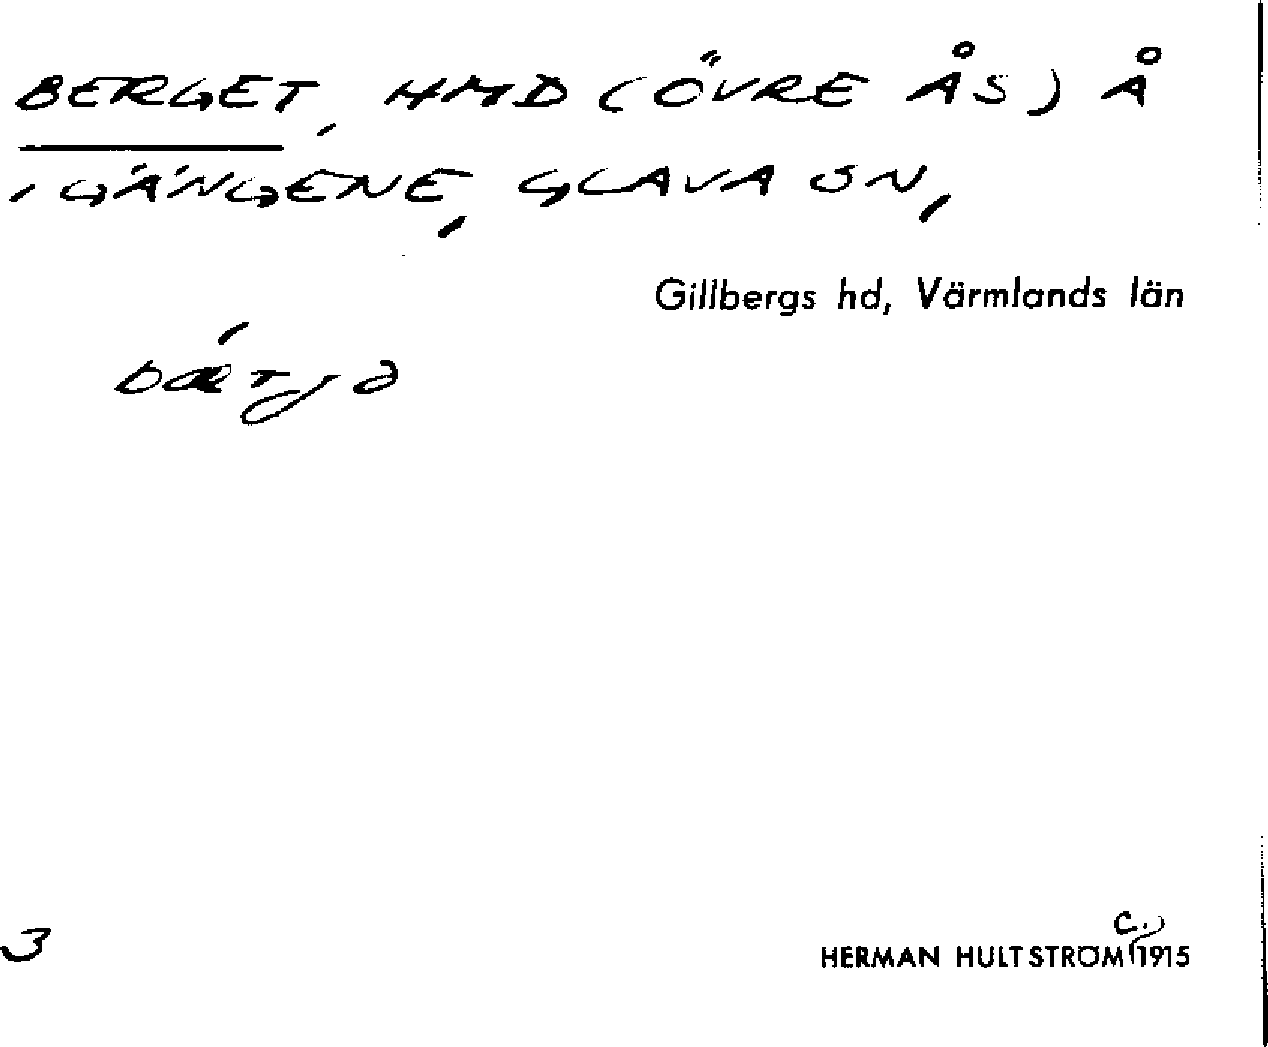 BERGET, HMD (ÖVRE ÅS) Å
IGÄNGENE, GLAVA SN,
Gillbergs hd, Värmlands län
3
C.
HERMAN HULTSTRÖM 1915